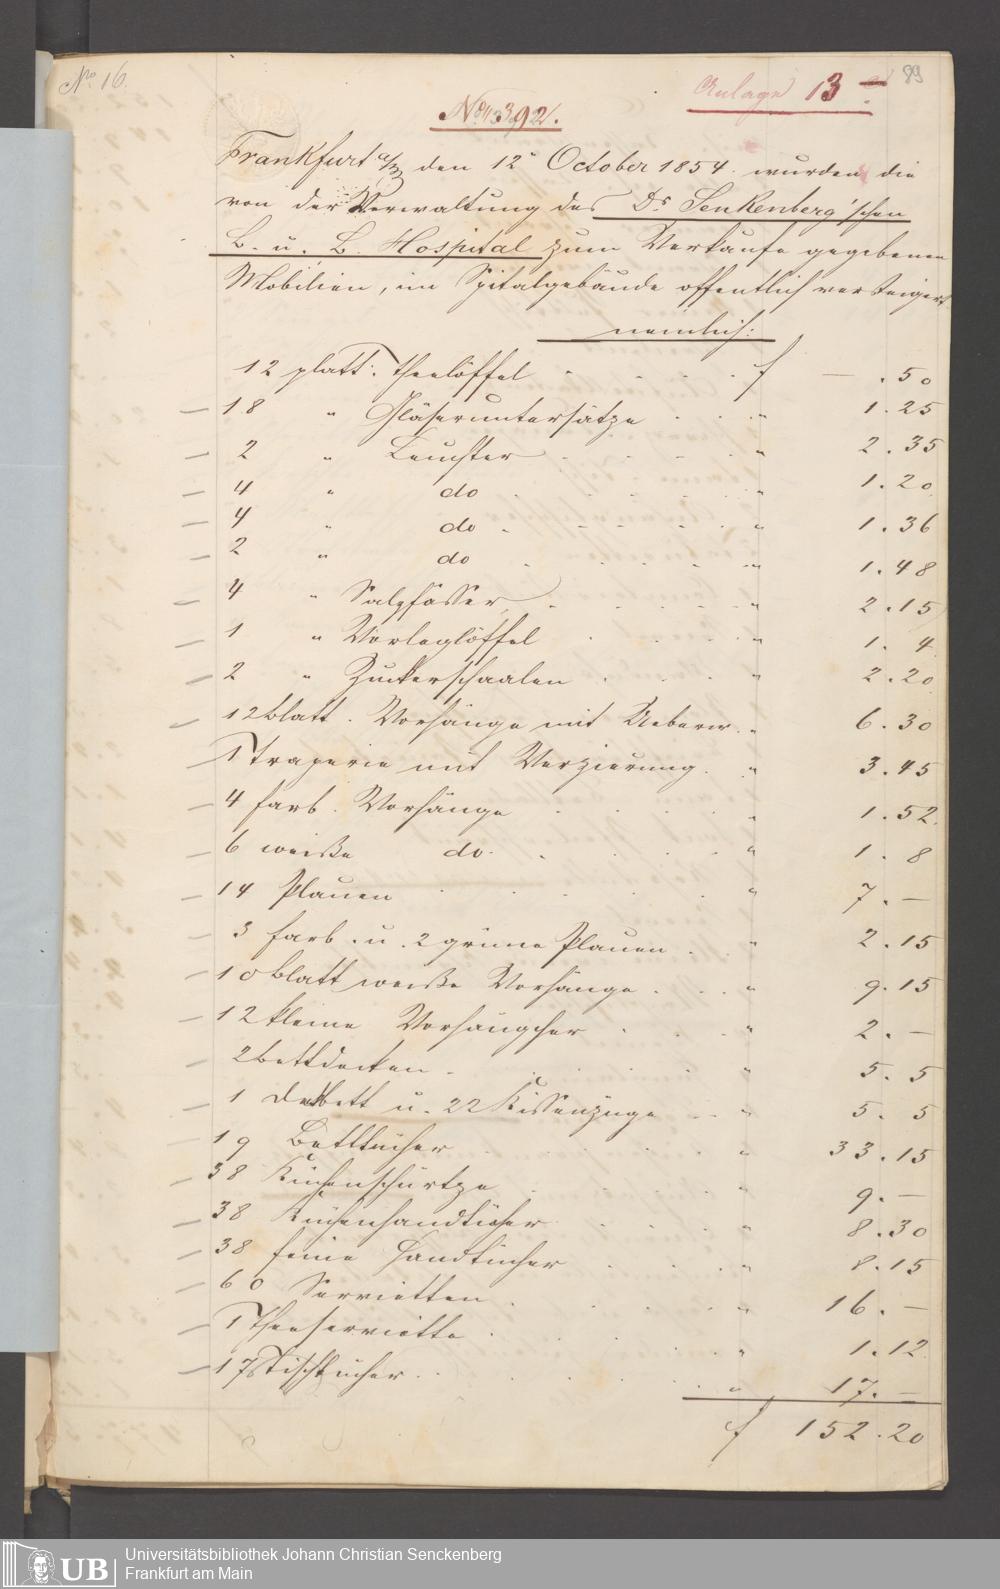 No. 16.
89
Anlage 13
No. 392.
Frankfurt a/M den 12n October 1854. wurden die
von der Verwaltung des Dr Senkenberg'schen
B. u. B. Hospital zum Verkaufe gegebenen
Mobilien, im Spitalgebäude öffentlich versteigert
nemlich:
12 platt. Theelöffel f — . 50
18 " Gläseruntersätze " 1. 25
2 " Leuchter " 2. 35
4 " do " 1. 20
4 " do " 1. 36
2 " do " 1. 48
4 " Salzfässer " 2. 15
1 " Vorleglöffel " 1. 4
2 " Zuckerschaalen " 2. 20
12 blatt. Vorhänge mit Ueberw. " 6. 30
1 Traperie mit Verzierung " 3. 45
4 farb. Vorhänge " 1. 52
6 weiße do. " 1. 8
14 Plauen " 7. —
3 farb. u. 2 grüne Plauen " 2. 15
10 blatt weiße Vorhänge " 9. 15
12 kleine Vorhängcher " 2. —
2 Bettdecken " 5. 5
1 Deckbett u. 22 Kissenzüge " 5. 5
19 Betttücher " 33. 15
38 Küchenschürtze " 9. —
38 Küchenhandtücher " 8. 30
38 feine Handtücher " 8. 15
60 Servietten " 16. —
1 Theeserviette " 1. 12
17 Tischtücher " 17. —
f 152. 20
UB
Universitätsbibliothek Johann Christian Senckenberg
Frankfurt am Main